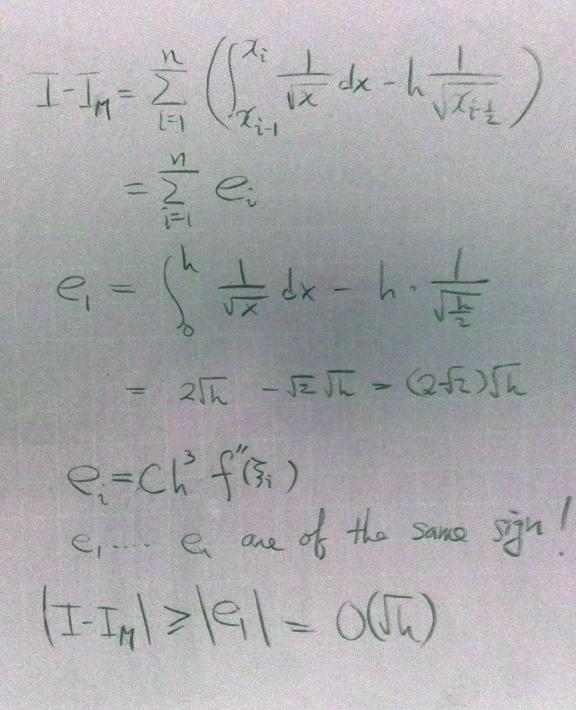 I-I_M = \sum_{i=1}^{n} ( \int_{x_{i-1}}^{x_i} \frac{1}{\sqrt{x}} dx - h \frac{1}{\sqrt{x_{i-\frac{1}{2}}}} )
= \sum_{i=1}^{n} e_i
e_1 = \int_0^h \frac{1}{\sqrt{x}} dx - h \cdot \frac{1}{\sqrt{\frac{h}{2}}}
= 2\sqrt{h} - \sqrt{2}\sqrt{h} = (2-\sqrt{2})\sqrt{h}
e_i = Ch^3 f''(ξ_i)
e_1 .... e_n are of the same sign!
|I-I_M| ≥ |e_1| = O(\sqrt{h})